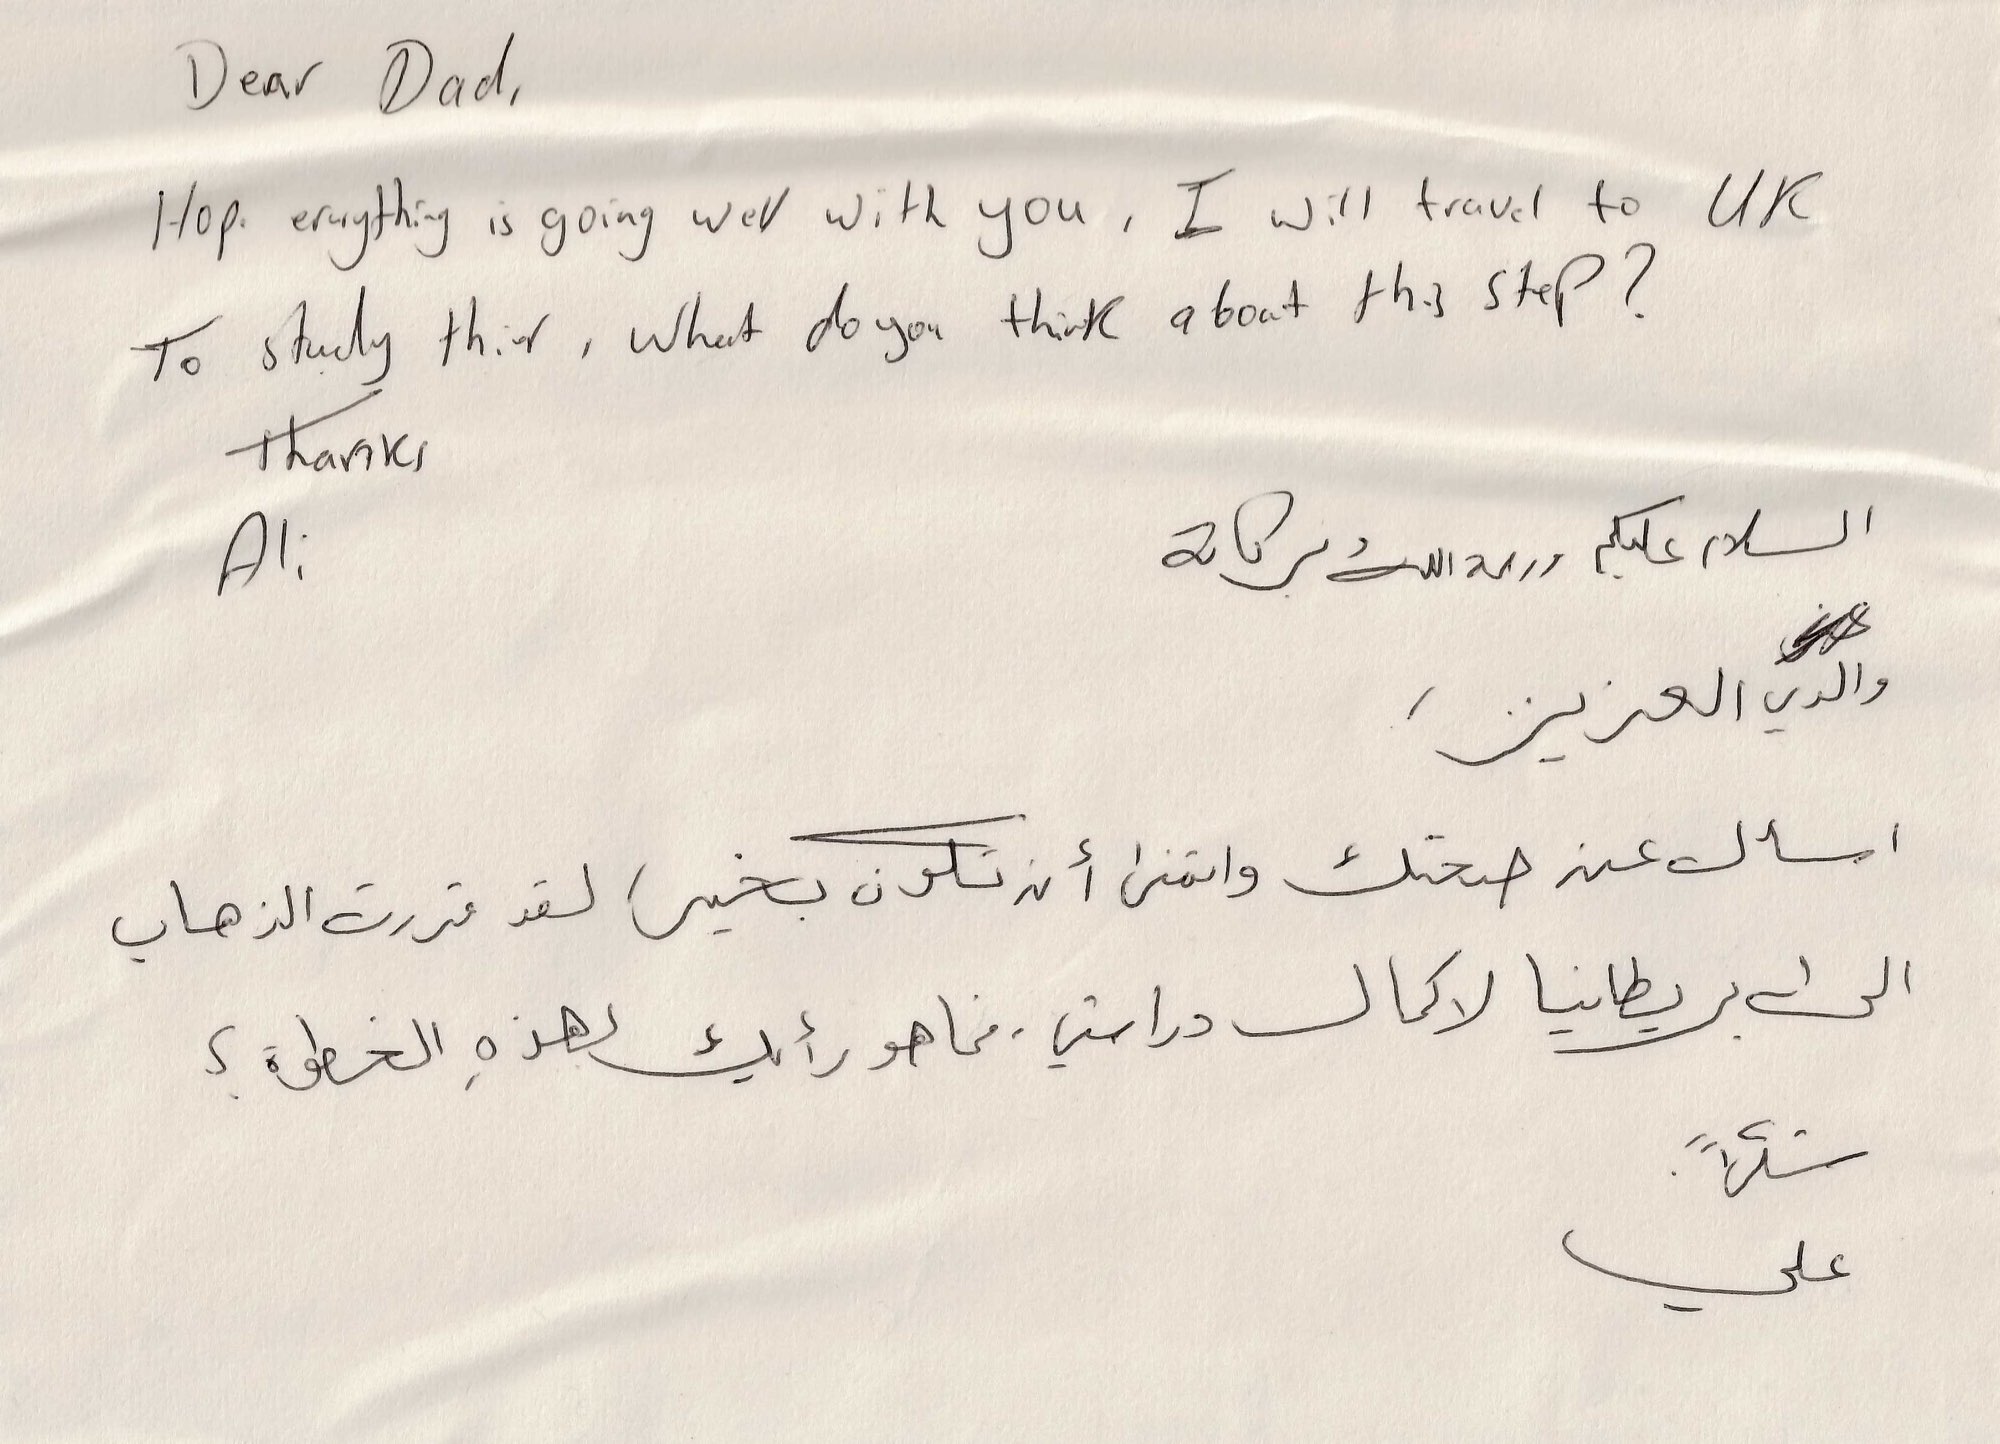 Dear Dad,
Hope everything is going well with you, I will travel to UK
To study thier, what do you think about this step?
Thanks,
Ali
السلام عليكم ورحمة الله وبركاتة
والدي العزيز،
اسال عن صحتك واتمنى أن تكون بخير، لقد قررت الذهاب
الى بريطانيا لاكمال دراستي. فما هو رأيك بهذهِ الخطوة؟
شكراً.
علي